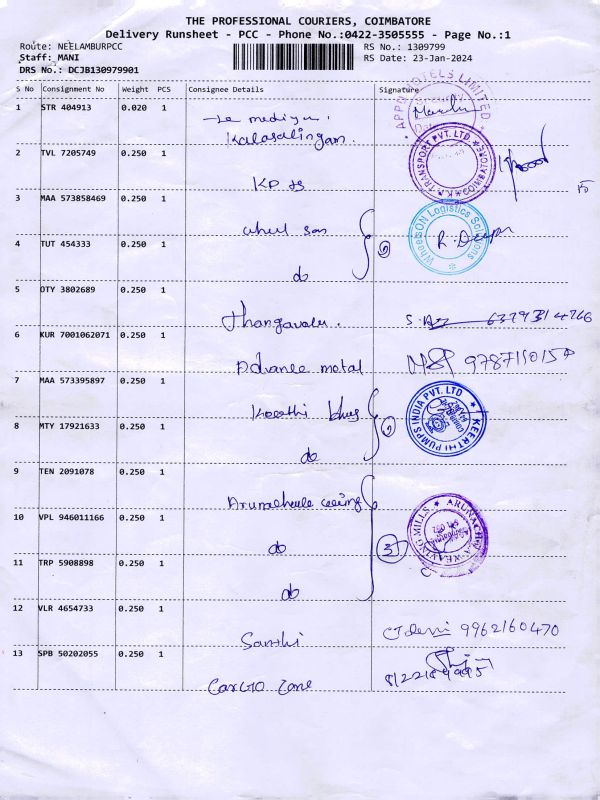 THE PROFESSIONAL COURIERS, COIMBATORE
Delivery Runsheet - PCC - Phone No.:0422-3505555 - Page No.:1
Route: NEELAMBURPCC
Staff: MANI
DRS No.: DCJB130979901
RS No.: 1309799
RS Date: 23-Jan-2024
S No Consignment No Weight PCS Consignee Details Signature
1 STR 404913 0.020 1
Kalasalingam
APPU HOTELS LIMITED
2 TVL 7205749 0.250 1
TRANSPORT PVT. LTD.
3 MAA 573858469 0.250 1
WheelSON Logistics Solutions
4 TUT 454333 0.250 1
do
5 OTY 3802689 0.250 1
Thangavalu.
6 KUR 7001062071 0.250 1
Advance metal
7 MAA 573395897 0.250 1
Keerthi
KEERTHI PUMPS INDIA PVT. LTD
8 MTY 17921633 0.250 1
do
9 TEN 2091078 0.250 1
10 VPL 946011166 0.250 1
do
3
11 TRP 5908898 0.250 1
do
12 VLR 4654733 0.250 1
Santhi
9962160470
13 SPB 50202055 0.250 1
CarGO Zone